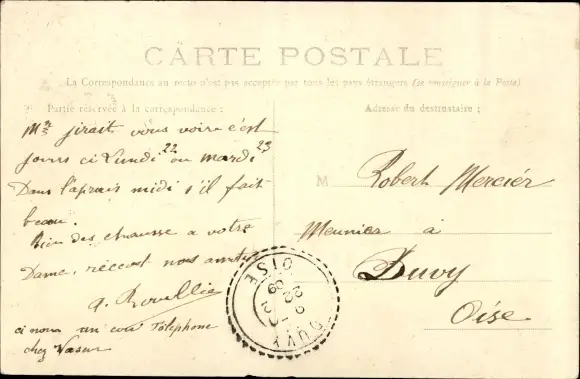 CARTE POSTALE
La Correspondance au recto n'est pas acceptée par tous les pays étrangers (se renseigner à la Poste)
Partie réservée à la correspondance :
Adresse du destinataire :
Mr jirait vous voire c'est
jours ci Lundi 22 ou mardi 23
Dans l'aprais midi s'il fait
beau.
Bien des chausse a votre
Dame, récevot nos amitié
ci nous un cou Téléphone
chez
M Robert Mercier
Meunier à
Duvy
Oise
DUVY
OISE